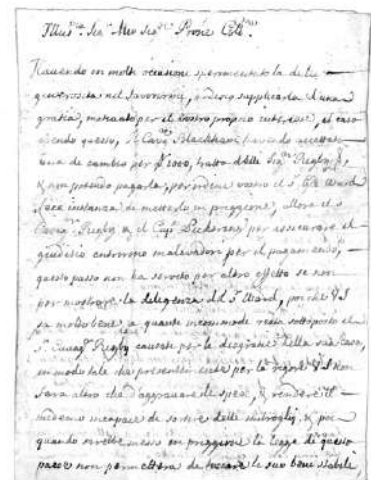 Illus.mo Sig.r Mio Sig.r Prone Coll.mo
Havendo in molte occasione sperimentato la di lei
generosita nel favorirmi, ardisco supplicarla d'una
gratia, motivato per il vostro proprio interesse, il caso
essendo questo, Il Cav.r Blackham havendo accettato
una de cambio per 1000, tratto delle Sig.ri Rugby
& non potendo pagarla, per ordine vostro el S.r Ward
fece instanza de metterlo in preggione, allora el S.r
Rugby & el Cap.n per assecurare el
giudisio entrorno malevadori per il pagamento,
questo passo non ha servito per altro effetto se non
per mostrare la deligenza del S.r Ward, poiche V S
sa molto bene a quante incommode resta sottoposto el
S.r Rugby causate per le disgratie della sua casa,
in modo tale che presentemente per la rigore V S non
fara altro che d'aggravare de spese, & rendere il
medemo incapace de sortire delle & poi
quando sarebbe messo in preggione la legge di questo
paese non permettera de toccare le sue bene stabile,